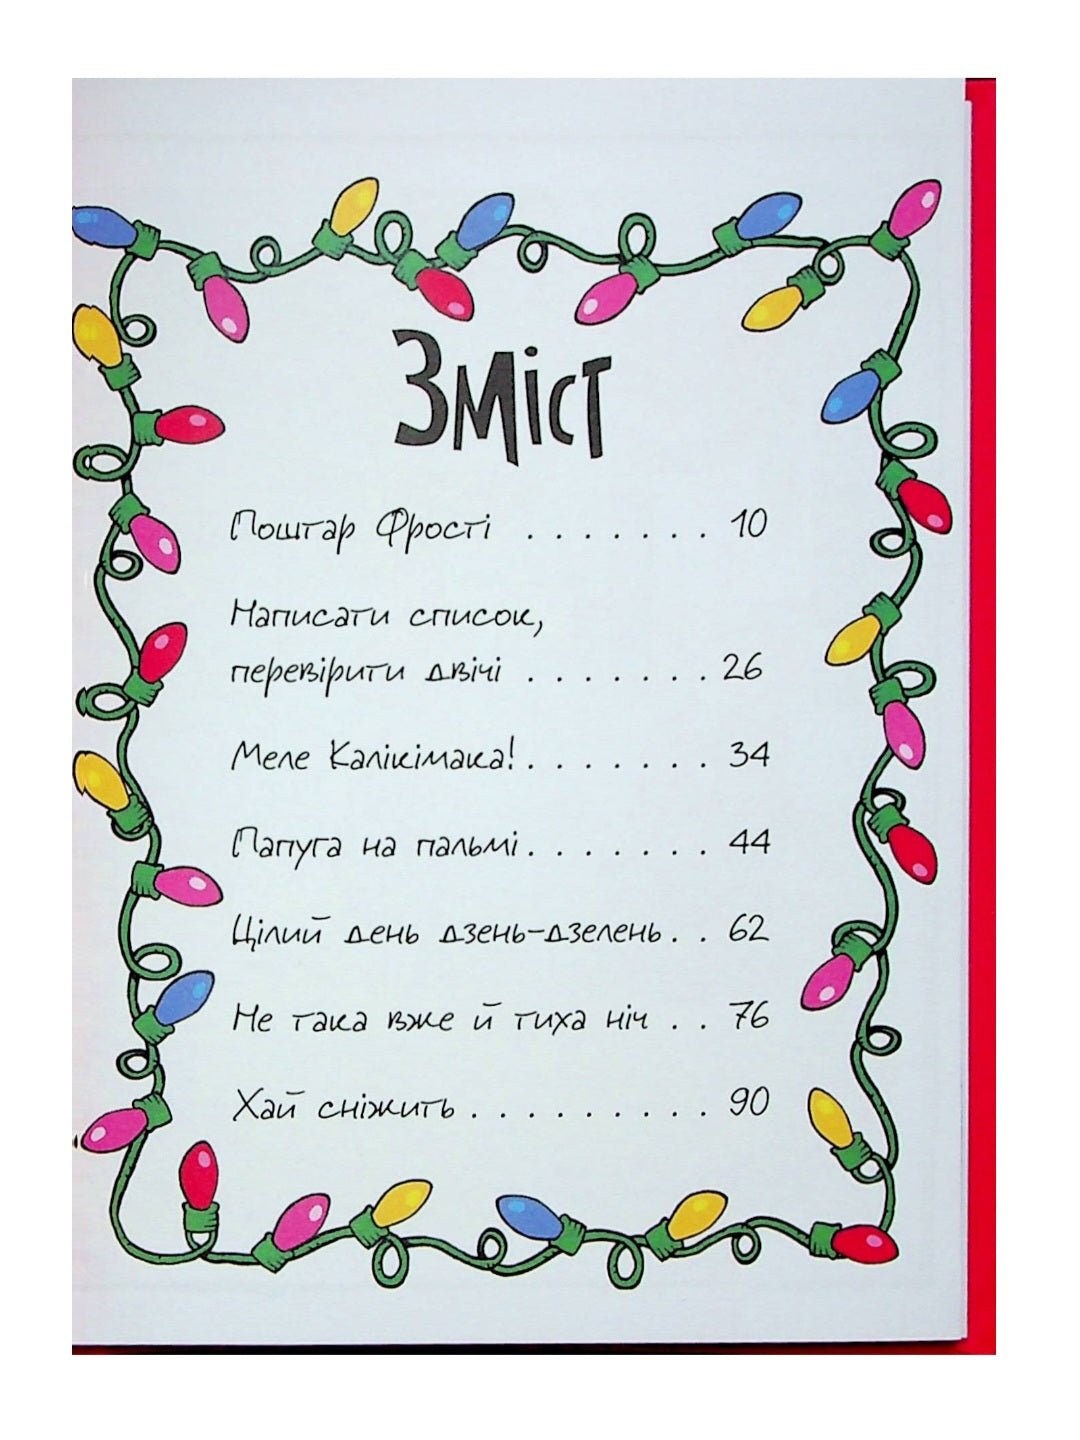 Зміст
Поштар Фрості . . . . . . . 10
Написати список,
перевірити двічі . . . . . . . 26
Меле Калікімака! . . . . . . . 34
Папуга на пальмі . . . . . . . 44
Цілий день дзень-дзелень . . 62
Не така вже й тиха ніч . . 76
Хай сніжить . . . . . . . . . 90